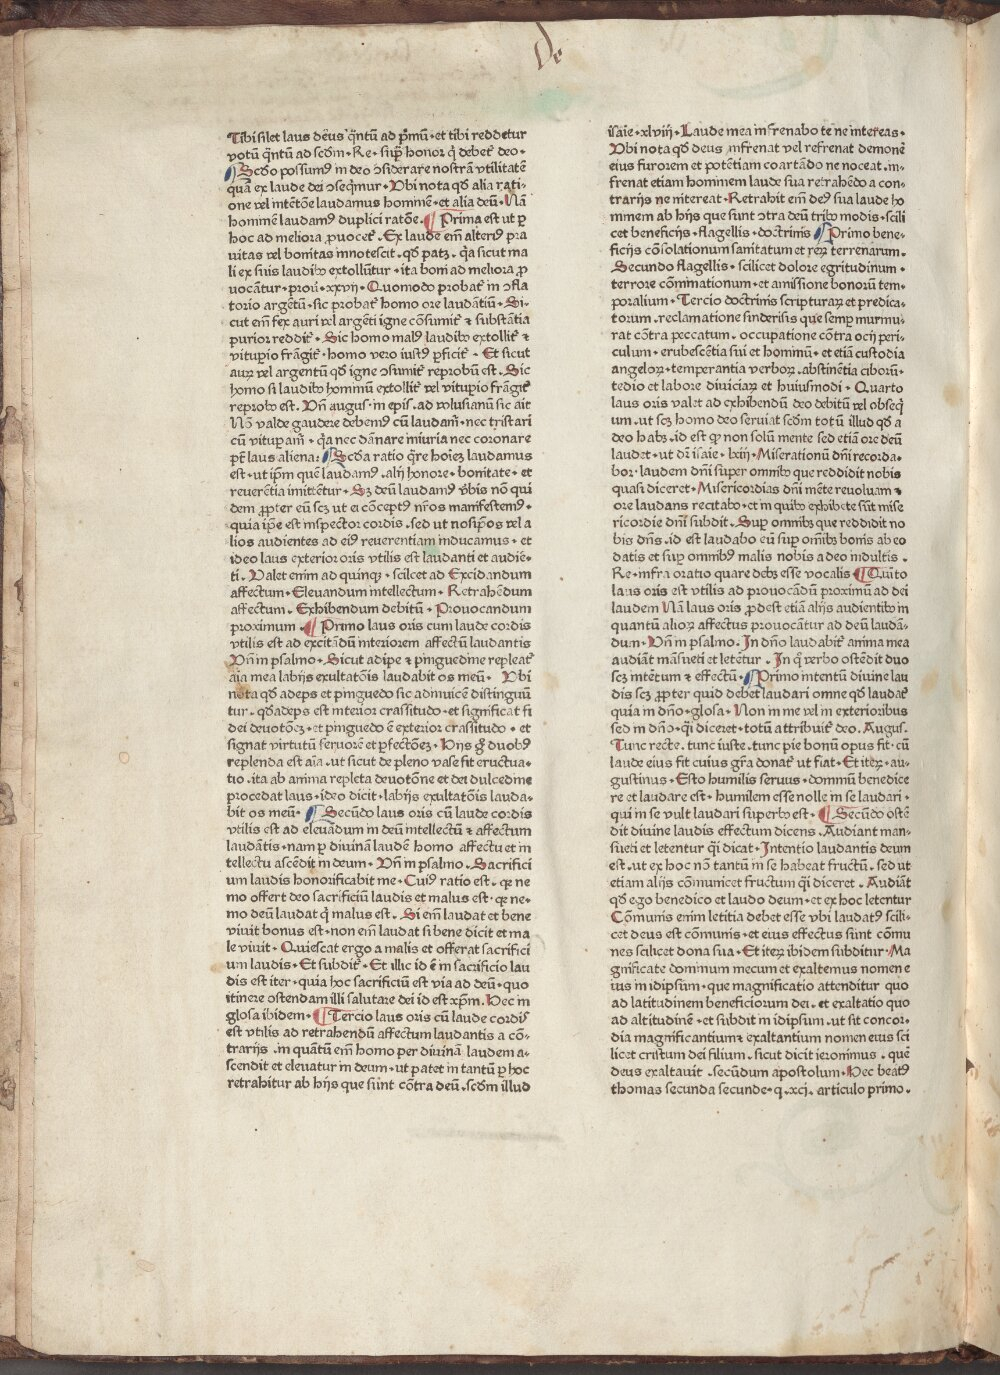 De
Tibi silet laus deus q̄ntū ad pͥmū. et tibi reddetur
votū q̄ntū ad scd̄m. Re. sup̄ honor q̄ debet᷑ deo.
¶ Scd̄o possumꝰ in deo ↄsiderare nostrā vtilitatē
quā ex laude dei ↄseq̄mur. Vbi nota qd̄ alia rati-
one vel intētōe laudamus hominē. et alia deū. Nā
hominē laudamꝰ duplici ratōe. ¶ Prima est ut p̱
hoc ad meliora ꝓuocet᷑. Ex laude em̄ alterꝰ pra
uitas vel bonitas innotescit. qd̄ patꝫ. q̄a sicut ma
li ex suis laudibꝰ extollūtur. ita boni ad meliora ꝓ
vocātur. prou̅. xxvij. Quomodo probat᷑ in ↄfla
torio argētū. sic probat᷑ homo ore laudātiū. Si-
cut em̄ fex auri vel argēti igne cōsumit᷑ ⁊ substātia
purior reddit᷑. Sic homo malꝰ laudibꝰ extollit᷑ ⁊
vitupio frāgit᷑. homo vero iustꝰ p̱ficit᷑. Et sicut
auꝝ vel argentū qd̄ igne ↄsumit᷑ reprobū est. Sic
homo si laudibꝰ hominū extollit᷑ vel vitupio frāgit᷑
reprobꝰ est. Vn̄ augus. in epis. ad volusianū sic ait
Nō valde gaudere debemꝰ cū laudam̄. nec tristari
cū vitup̱am̄. q̄a nec dānare iniuria nec coronare
pt̄ laus aliena. ¶ Scd̄a ratio q̄re hoīeꝫ laudamus
est. ut ip̄m quē laudamꝰ. alij honore. bonitate. et
reuerētia imitētur. Sꝫ deū laudamꝰ v̄bis nō qui
dem ꝓpter eū scꝫ ut ei cōceptꝰ nr̄os manifestemꝰ.
quia ip̄e est inspector cordis. sed ut nosip̄os vel a
lios audientes ad eiꝰ reuerentiam inducamus. et
ideo laus exterior oris vtilis est laudanti et audiē-
ti. Valet enim ad quinqꝫ. scilcet ad Excitandum
affectum. Eleuandum intellectum. Retrahēdum
affectum. Exhibendum debitū. Prouocandum
proximum. ¶ Primo laus oris cum laude cordis
vtilis est ad excitādū interiorem affectū laudantis
Vn̄ in psalmo. Sicut adipe ⁊ pinguedine repleat᷑
aīa mea labijs exultatōis laudabit os meū. Vbi
nota qd̄ adeps et pinguedo sic adinuicē distinguū
tur. qd̄ adeps est interior crassitudo. et significat fi
dei deuotōeꝫ. et pinguedo ē exterior crassitudo. et
signat virtutū feruorē et p̱fectōeꝫ. Hijs g̊ duobꝰ
replenda est aīa. ut sicut de pleno vase fit eructua-
tio. ita ab anima repleta deuotōne et dei dulcedine
procedat laus. ideo dicit. labijs exultatōis lauda-
bit os meū. ¶ Secūdo laus oris cū laude cordis
vtilis est ad eleuādum in deū intellectū ⁊ affectum
laudātis. nam p̱ diuinā laudē homo affectu et in
tellectu ascēdit in deum. Vn̄ in psalmo. Sacrifici
um laudis honorificabit me. Cuiꝰ ratio est. qꝛ ne
mo offert deo sacrificiū laudis et malus est. qꝛ ne-
mo deū laudat q̄ malus est. Si em̄ laudat et bene
viuit bonus est. non em̄ laudat si bene dicit et ma
le viuit. Quiescat ergo a malis et offerat sacrifici
um laudis. Et subdit᷑. Et illic id ē in sacrificio lau
dis est iter. quia hoc sacrificiū est via ad deū. quo
itinere ostendam illi salutare dei id est xp̄m. Hec in
glosa ibidem. ¶ Tercio laus oris cū laude cordis
est vtilis ad retrahendū affectum laudantis a cō-
trarijs. in quātū em̄ homo per diuinā laudem a-
scendit et eleuatur in deum. ut patet in tantū p̱ hoc
retrahitur ab hijs que sunt cōtra deū. scd̄m illud
isaie. xlviij. Laude mea infrenabo te ne intereas.
Vbi nota qd̄ deus infrenat vel refrenat demonē
eius furorem et potētiam coartādo ne noceat. in-
frenat etiam hominem laude sua retrahēdo a con-
trarijs ne intereat. Retrahit em̄ deꝰ sua laude ho
minem ab hijs que sunt ↄtra deū tribꝰ modis. scili
cet beneficijs. flagellis. doctrinis ¶ Primo bene-
ficijs cōsolationum sanitatum et reꝝ terrenarum.
Secundo flagellis. scilicet dolore egritudinum.
terrore cōminationum. et amissione bonorū tem-
poralium. Tercio doctrinis scripturaꝝ et predica-
torum. reclamatione sinderisis que semp̱ murmu-
rat cōtra peccatum. occupatione cōtra ocij peri-
culum. erubescētia sui et hominū. et etiā custodia
angeloꝝ. temperantia verboꝝ. abstinētia ciborū.
tedio et labore diuiciaꝝ et huiusmodi. Quarto
laus oris valet ad exhibendū deo debitū vel obseq̄
um. ut scꝫ homo deo seruiat scd̄m totū illud qd̄ a
deo habꝫ. id est qꝛ non solū mente sed etiā ore deū
laudet. ut dī isaie. lxiij. Miserationū dn̄i recorda-
bor. laudem dn̄i super omnibꝰ que reddidit nobis
quasi diceret. Misericordias dn̄i mēte reuoluam ⁊
ore laudans recitabo. et in quibꝰ exhibete sūt mise
ricordie dn̄i subdit. Sup̱ omnibꝫ que reddidit no
bis dn̄s. id est laudabo eū sup̱ om̄ibꝫ bonis ab eo
datis et sup̱ omnibꝰ malis nobis a deo indultis.
Re. infra oratio quare debꝫ esse vocalis ¶ Quīto
laus oris est vtilis ad prouocādū proximū ad dei
laudem Nā laus oris ꝓdest etiā alijs audientibꝰ in
quantū alioꝝ affectus prouocātur ad deū laudā-
dum. Vn̄ in psalmo. In dn̄o laudabit᷑ anima mea
audiāt māsueti et letētur. In q̊ verbo ostēdit duo
scꝫ intētum ⁊ effectū. ¶ Primo intentū diuine lau
dis scꝫ ꝓpter quid debet laudari omne qd̄ laudat᷑
quia in dn̄o. glosa. Non in me vel in exterioribus
sed in dn̄o. q̄i diceret. totū attribuit᷑ deo. Augus.
Tunc recte. tunc iuste. tunc pie bonū opus fit. cū
laude eius fit cuius gr̄a donat᷑ ut fiat. Et iteꝝ. au-
gustinus. Esto humilis seruus. dominū benedice
re et laudare est. humilem esse nolle in se laudari.
qui in se vult laudari superbꝰ est. ¶ Secūdo ostē
dit diuine laudis effectum dicens. Audiant man-
sueti et letentur q̄i dicat. Intentio laudantis deum
est. ut ex hoc nō tantū in se habeat fructū. sed ut
etiam alijs cōmunicet fructum q̄i diceret. Audiāt
qd̄ ego benedico et laudo deum. et ex hoc letentur
Cōmunis enim letitia debet esse vbi laudatꝰ scili-
cet deus est cōmunis. et eius effectus sunt cōmu
nes scilicet dona sua. Et iteꝝ ibidem subditur. Ma
gnificate dominum mecum et exaltemus nomen e
ius in idipsum. que magnificatio attenditur quo
ad latitudinem beneficiorum dei. et exaltatio quo
ad altitudinē. et subdit in idipsum. ut sit concor-
dia magnificantium⁊ exaltantium nomen eius sci
licet cristum dei filium. sicut dicit ieronimus. quē
deus exaltauit. secūdum apostolum. Hec beatꝰ
thomas secunda secunde. q. xcj. articulo primo.